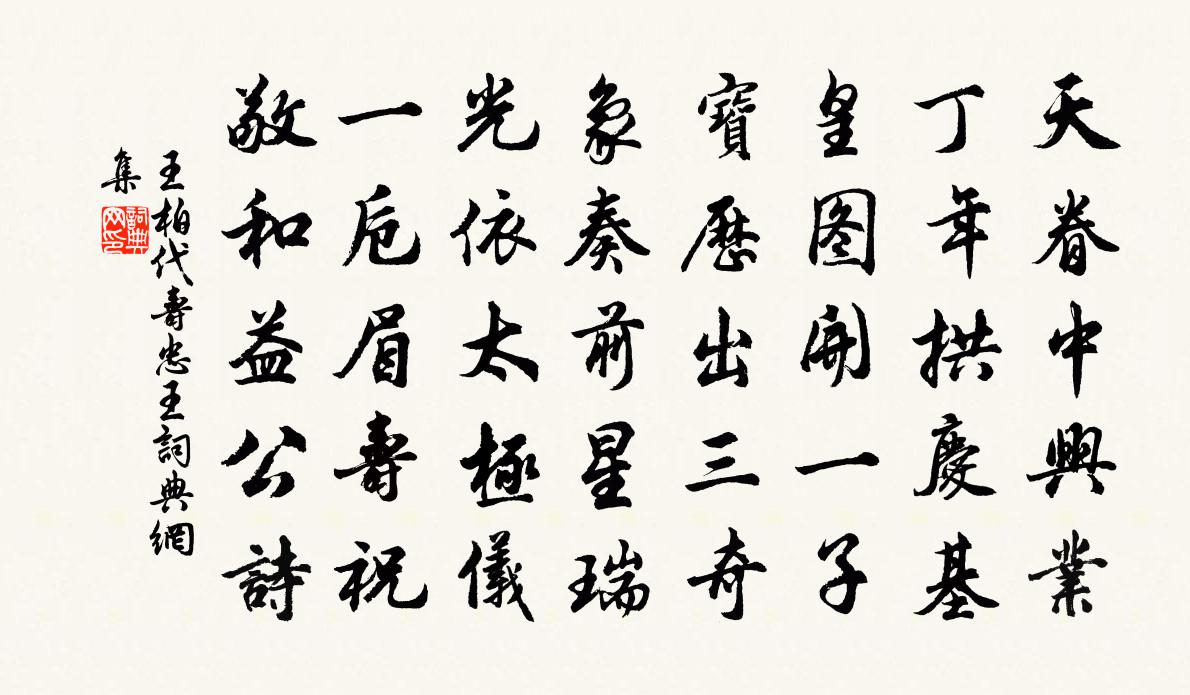 天眷中興業
丁年拱慶基
皇图開一子
寶歷出三奇
象奏前星瑞
光依太極儀
一卮眉壽祝
敬和益公詩
王柏代壽忠王詞典網
集
詞典
网印